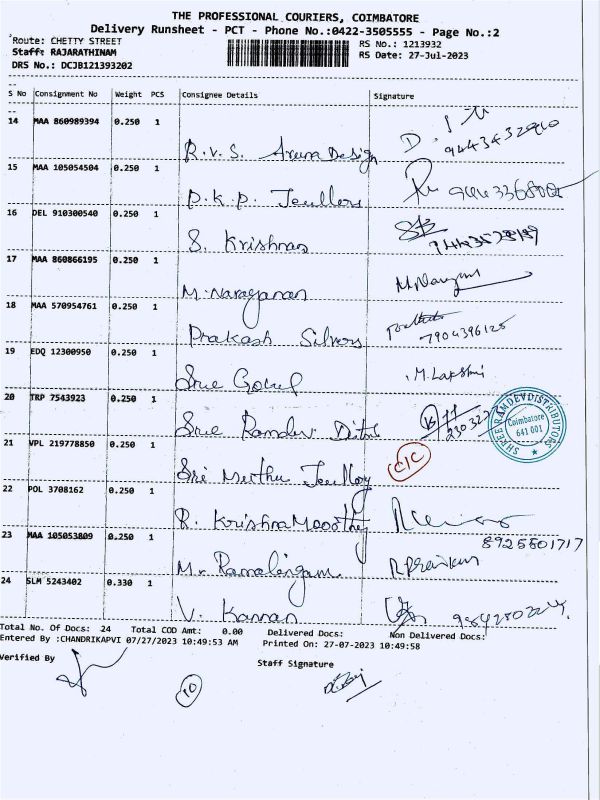 THE PROFESSIONAL COURIERS, COIMBATORE
Delivery Runsheet - PCT - Phone No.:0422-3505555 - Page No.:2
Route: CHETTY STREET
RS No.: 1213932
Staff: RAJARATHINAM
RS Date: 27-Jul-2023
DRS No.: DCJB121393202
S No Consignment No Weight PCS Consignee Details Signature
14 MAA 860989394 0.250 1
R.V.S. Design D.
15 MAA 105054504 0.250 1
P.K.P. Jewllers
16 DEL 910300540 0.250 1
S. Krishnan
17 MAA 860866195 0.250 1
M. Narayanan
18 MAA 570954761 0.250 1
Prakash Silvers 7904396125
19 EDQ 12300950 0.250 1
Sree Gokul M. Lakshmi
20 TRP 7543923 0.250 1
Sree Ramdev
SHREE RAMDEV DISTRIBUTORS
Coimbatore
641 001
21 VPL 219778850 0.250 1
Sri Muthu Jewllery C/C
22 POL 3708162 0.250 1
R. Krishna Moorthy
23 MAA 105053809 0.250 1 8925801717
Mr Ramalingam
24 SLM 5243402 0.330 1
V. Kannan
Total No. Of Docs: 24 Total COD Amt: 0.00 Delivered Docs: Non Delivered Docs:
Entered By :CHANDRIKAPVI 07/27/2023 10:49:53 AM Printed On: 27-07-2023 10:49:58
Verified By Staff Signature
10